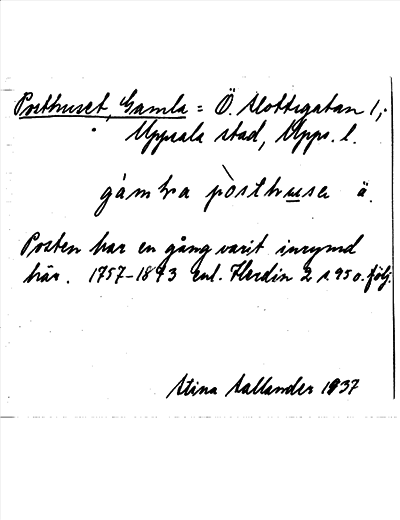 Posthuset, Gamla = Ö. Slottsgatan 1,
Uppsala stad, Upps. l.
gàmḷa pòsthuse ä.
Posten har en gång varit inrymd
här. 1757-1843 enl. Herdin 2 s. 950. följ.
Stina Sallander 1937